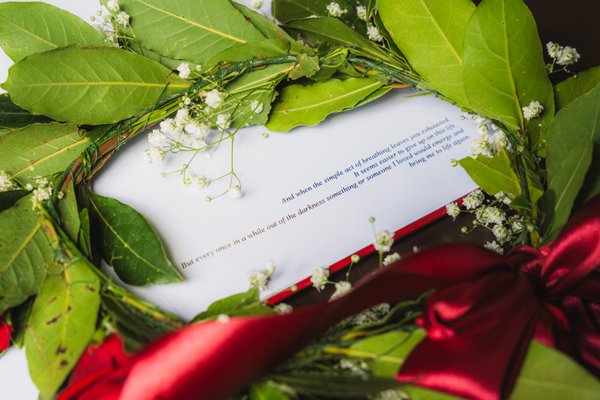 And when the simple act of breathing leaves you exhausted.
It seems easier to give up on this life.
But every once in a while out of the darkness something or someone I loved would emerge and
bring me to life again.